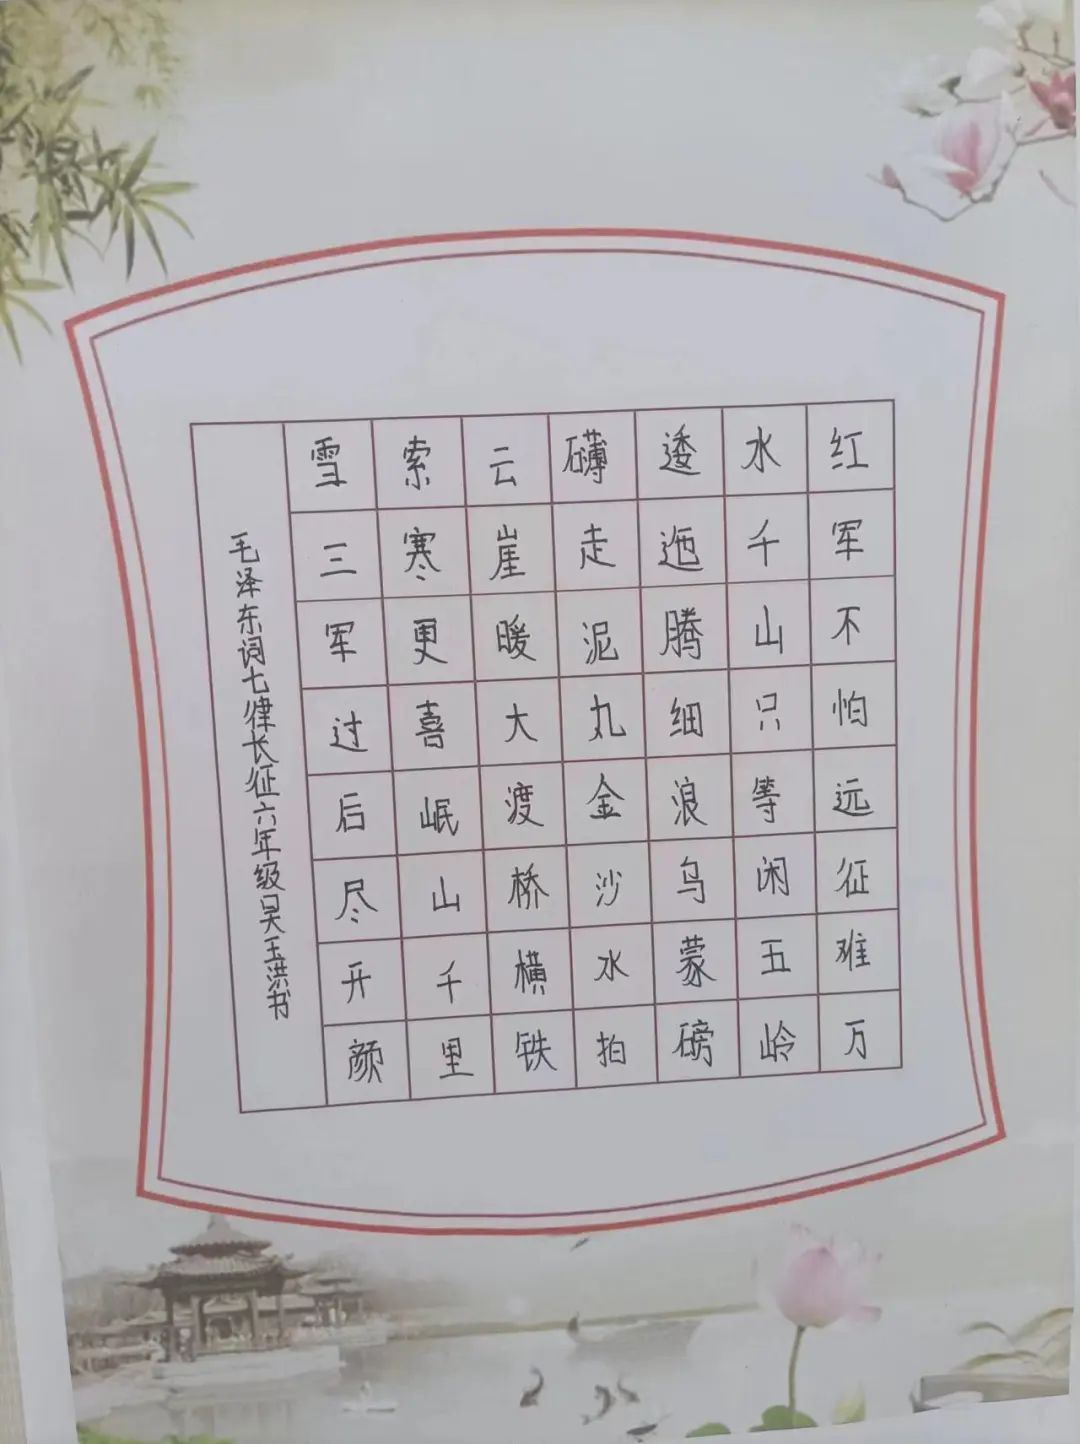 红军不怕远征难万
水千山只等闲五岭
逶迤腾细浪乌蒙磅
礴走泥丸金沙水拍
云崖暖大渡桥横铁
索寒更喜岷山千里
雪三军过后尽开颜
毛泽东词七律长征六年级吴玉洪书